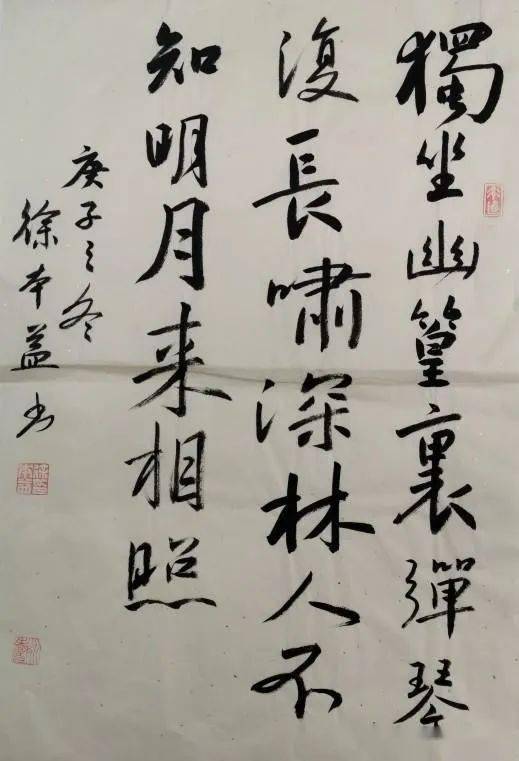 獨坐幽篁裏彈琴
復長嘯深林人不
知明月来相照
庚子之冬
徐本益书